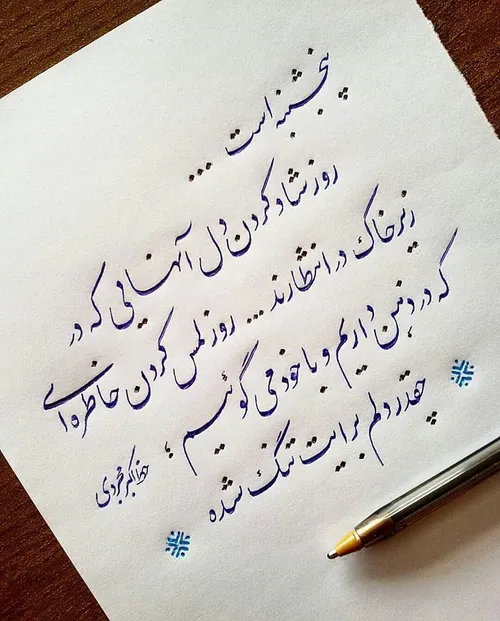 پنجشنبه است ...
روز شاد کردن دل آنهایی که در
زیر خاک در انتظارند ... روز لمس کردن خاطره‌ای
که در ذهن داریم و با خود می گوئیم ؛
چقدر دلم برایت تنگ شده